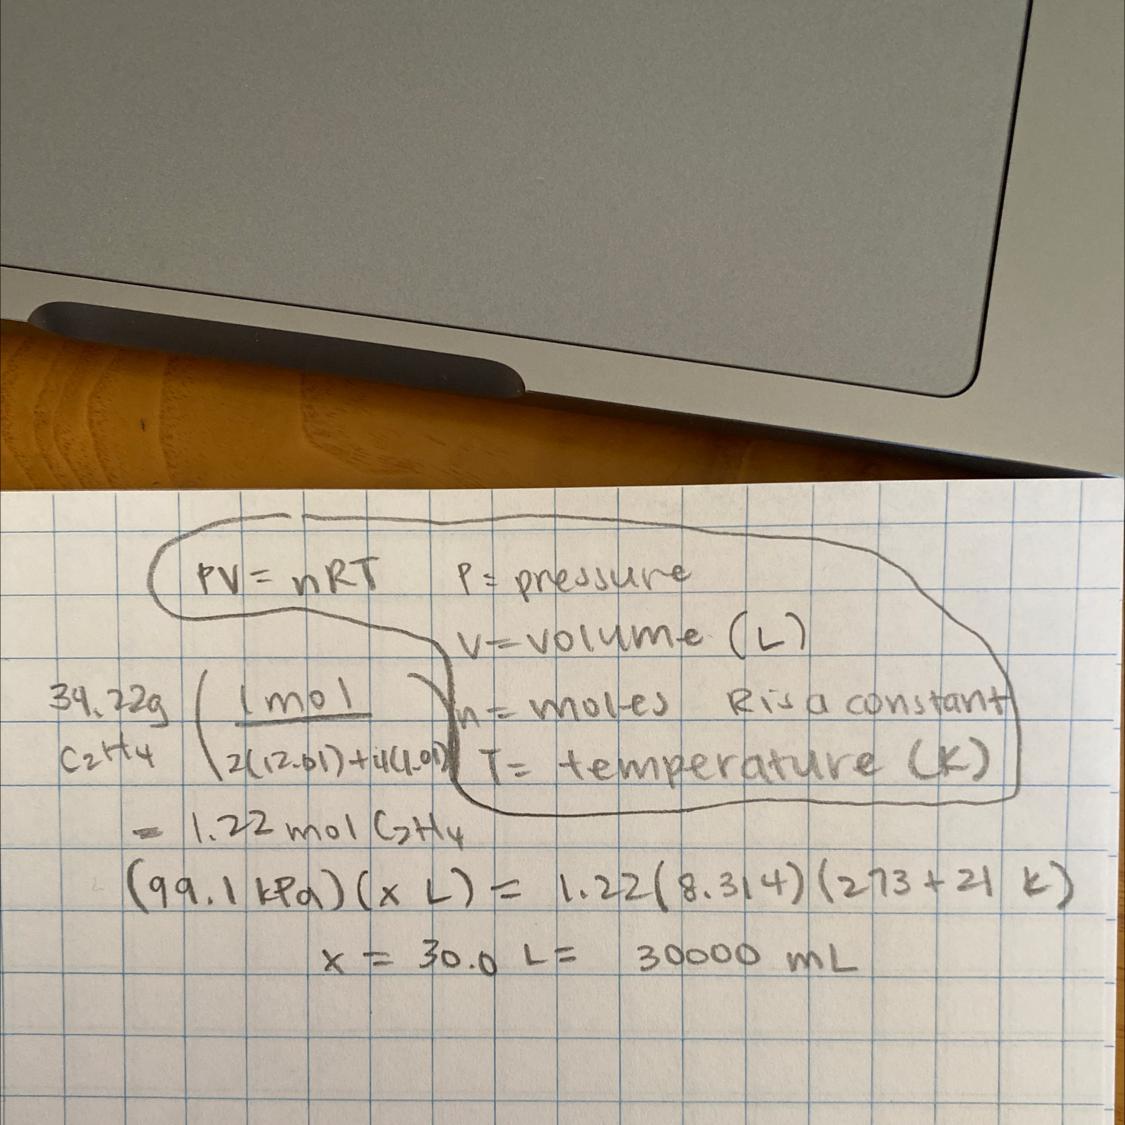 PV = nRT P = pressure
V = volume (L)
n = moles R is a constant
T = temperature (K)
34.22g C2H4 (1 mol / 2(12.01)+4(1.01))
= 1.22 mol C2H4
(99.1 kPa)(x L) = 1.22(8.314)(273+21 K)
x = 30.0 L = 30000 mL